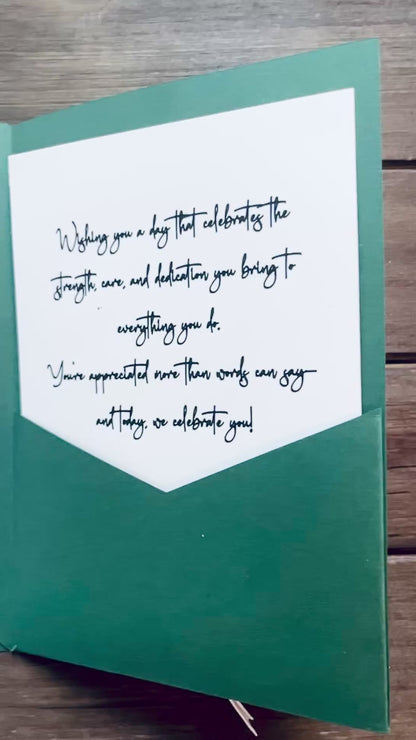 Wishing you a day that celebrates the
strength, care, and dedication you bring to
everything you do.
You're appreciated more than words can say
and today, we celebrate you!